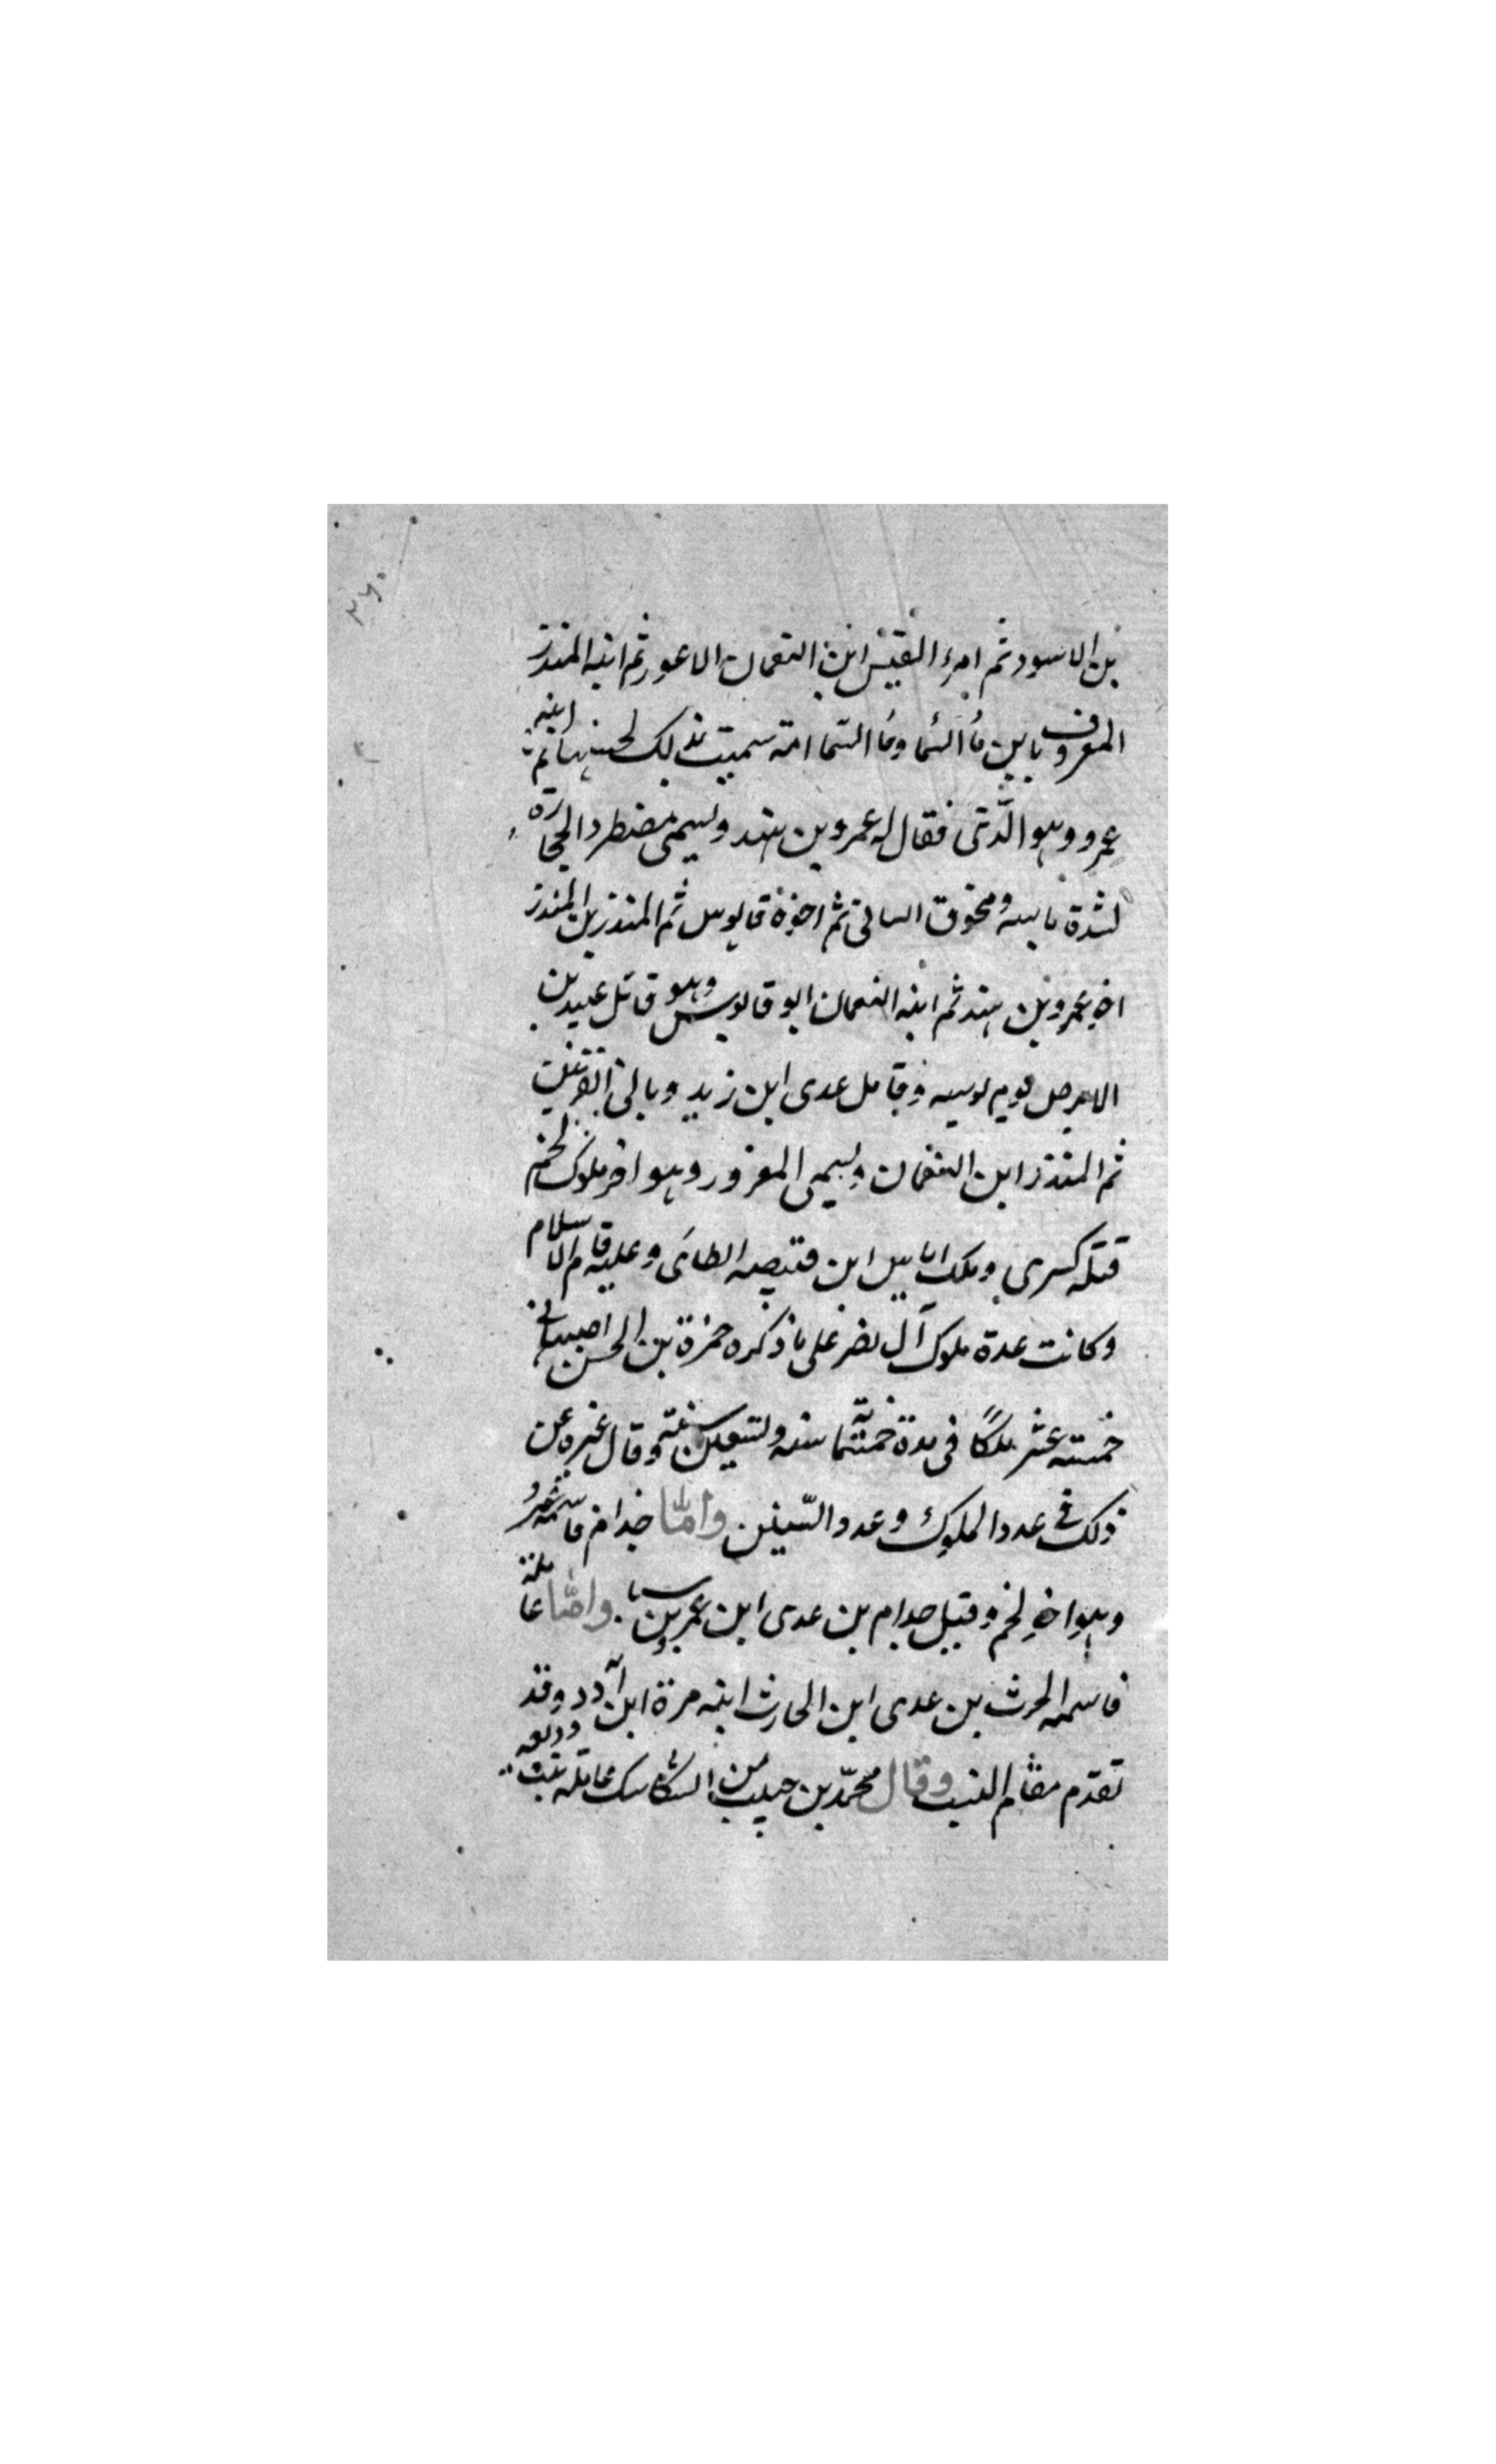 ٢٦٠
بن الاسود ثم امرء القيس ابن النعمان الاعور ثم ابنه المنذر
المعروف بابن مأ السما ومأ السما امه سميت بذلك لحسنها ثم ابنه
عمرو وهو الذى فقال له عمرو بن هند ويسمى مضطر د الحجارة
لشدة باسه ومخوق الساق ثم اخوه قابوس ثم المنذر بن المنذر
اخ عمرو بن هند ثم ابنه النعمان ابو قابوس وهو قاتل عبيد بن
الابرص يوم بوسه وقامل عدى ابن زيد وبانى
ثم المنذر ابن النعمان ويسمى المغرور وهو اخر ملوك لخم
قتله كسرى وملك اياس ابن قبيصه الطائى وعليه قام الاسلام
وكانت عدة ملوك آل نصر على ما ذكره حمزة بن الحسن اصبهانى
خمسته عشر ملكًا فى مدة خمسمائة سنه وتسعين سنته وقال غيره عن
ذلك فى عدد الملوك وعدد السنين وامّا جذام فاسمه عمرو
وهو اخ لخم وقيل جدام بن عدى ابن عمر بن سبا. وامّا عاملة
فاسمه الحرث بن عدى ابن الحارث ابنه مرة ابن أدد وقد
تقدم مقام النسب وقال محمّد بن حبيب من السكاسك عامله بنت وديعه